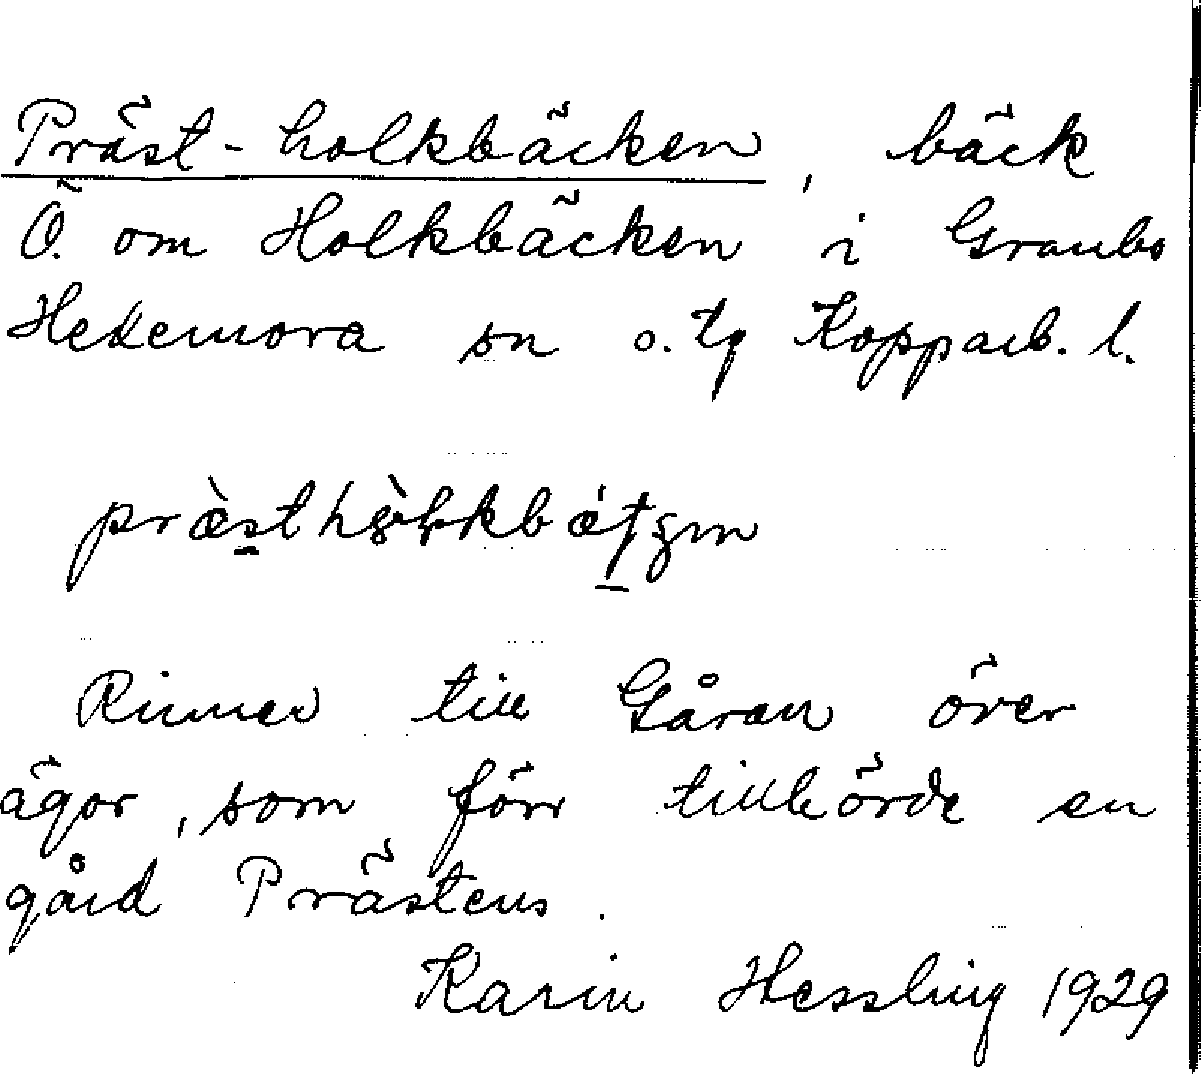 Präst-holkbäcken, bäck
Ö. om Holkbäcken i Granbo
Hedemora sn o. tg Kopparb. l.
Rinner till Gåran över
ägor, som förr tillhörde en
gård Prästens.
Karin Hessling 1929